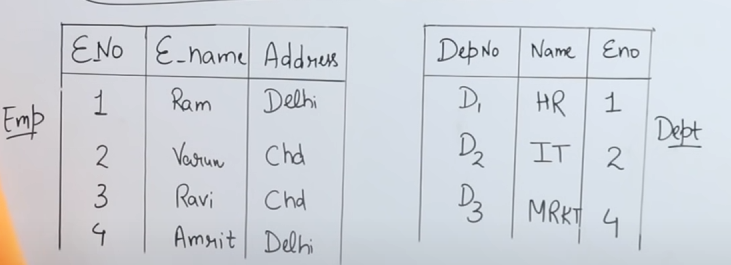 E.No E_name Address DepNo Name Eno
1 Ram Delhi D1 HR 1
Emp Dept
2 Varun Chd D2 IT 2
3 Ravi Chd D3 MRKT 4
4 Amrit Delhi